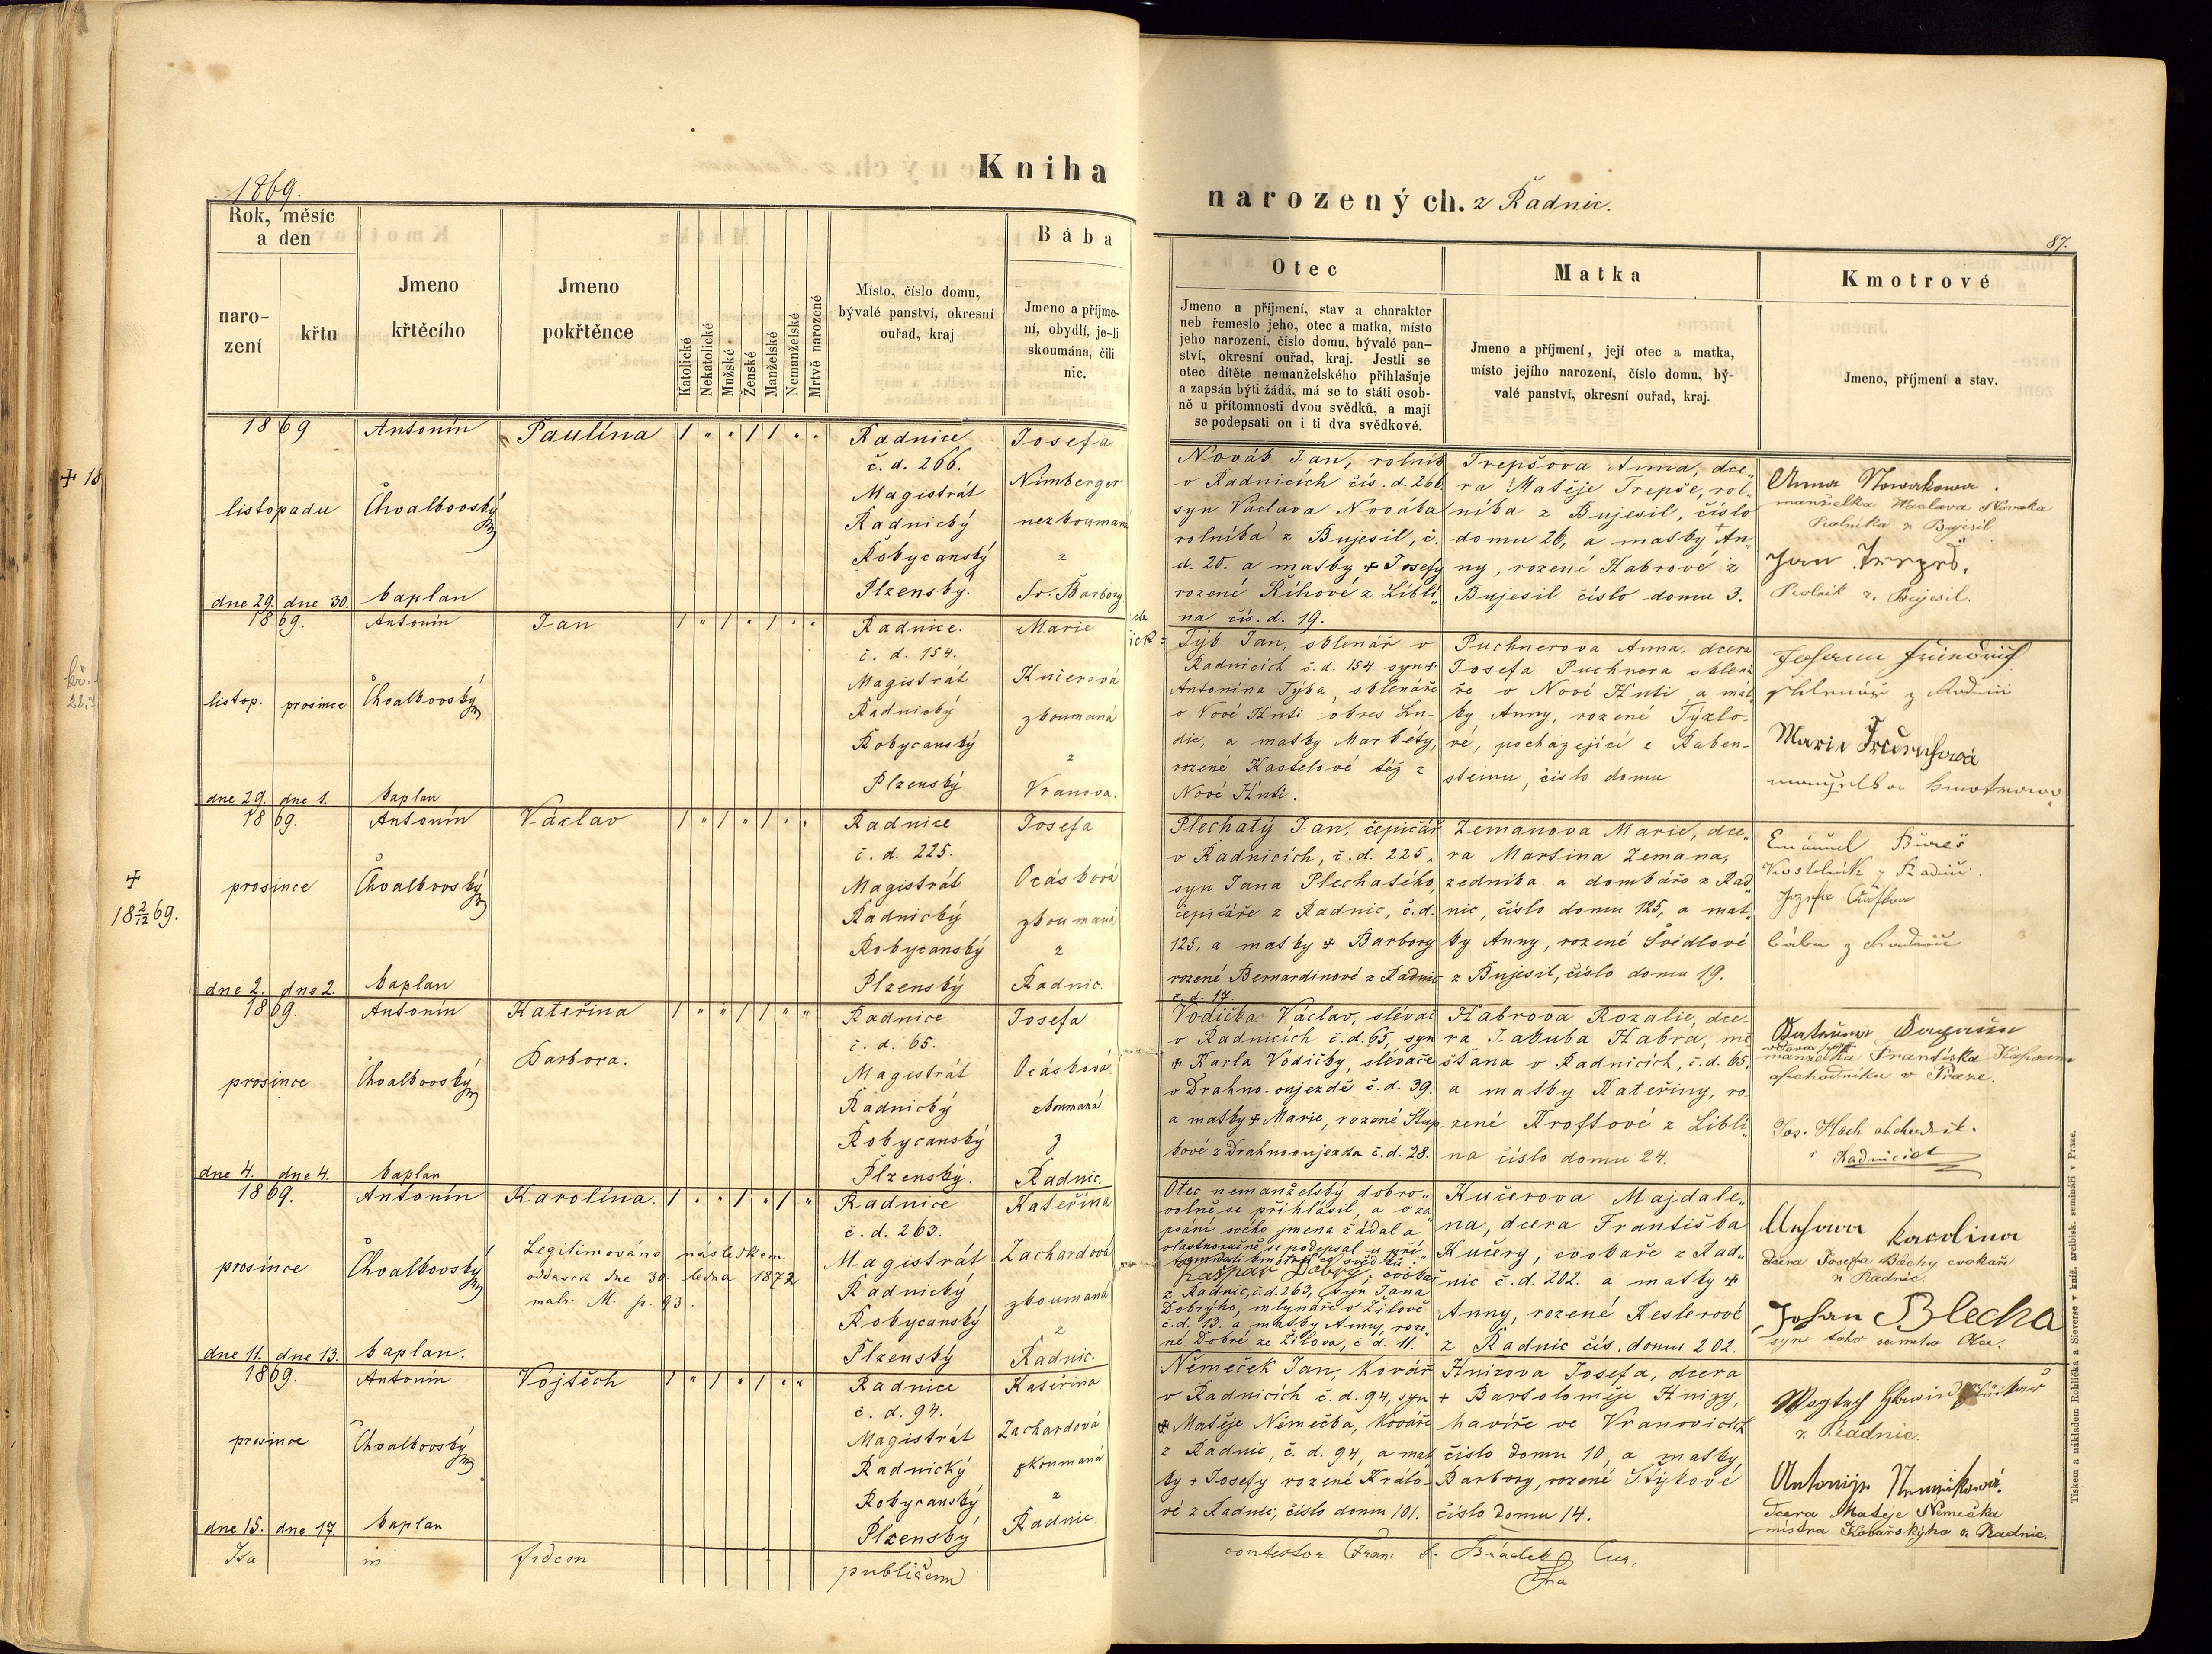 1869.
Kniha
narozených. z Radnic.
87.
Rok, měsíc
a den
naro-
zení
křtu
Jmeno
křtěcího
Jmeno
pokřtěnce
Katolické
Nekatolické
Mužské
Ženské
Manželské
Nemanželské
Mrtvě narozené
Místo, číslo domu,
bývalé panství, okresní
ouřad, kraj
Bába
Jmeno a příjme-
ní, obydlí, je-li
skoumána, čili
nic.
Otec
Jmeno a příjmení, stav a charakter
neb řemeslo jeho, otec a matka, místo
jeho narození, číslo domu, bývalé pan-
ství, okresní ouřad, kraj. Jestli se
otec dítěte nemanželského přihlašuje
a zapsán býti žádá, má se to státi osob-
ně u přítomnosti dvou svědků, a mají
se podepsati on i ti dva svědkové.
Matka
Jmeno a příjmení, její otec a matka,
místo jejího narození, číslo domu, bý-
valé panství, okresní ouřad, kraj.
Kmotrové
Jmeno, příjmení a stav.
1869
listopadu
dne 29. dne 30.
Antonín
Chvalkovský
kaplan
Paulina
Radnice
č. d. 266.
Magistrát
Radnický
Rokycanský
Plzenský.
Josefa
Nimberger
nezkouman
z
Sv. Barbory
Novák Jan, rolník
v Radnicích čís. d. 266
syn Václava Nováka
rolníka z Bujesil, č.
d. 20. a matky + Josefy
rozené Říhové z Libli„
na čís. d. 19.
Trepšova Anna, dce„
ra Matěje Trepše, rol„
níka z Bujesil, číslo
domu 26, a matky + An„
ny, rozené Habrové z
Bujesil číslo domu 3.
Anna Nowakowa.
manželka Waclava Nowaka
Rolníka z Bujesil
Jan
Rolník z. Bujesil.
+ 18
1869.
listop. prosince
dne 29. dne 1.
Antonín
Chvalkovský
kaplan
Jan
Radnice.
č. d. 154.
Magistrát
Radnický
Rokycanský
Plzenský
Marie
Kučerová
zkoumaná
z
Vranova.
Týk Jan, sklenář v
Radnicích č. d. 154 syn +
Antonína Týka, sklenáře
v Nové Huti okres Zu-
dic, a matky Markéty,
rozené Kastelové též z
Nové Huti.
Puchnerova Anna, dcera
Josefa Puchnera sklená
ře v Nové Huti a mat
ky Anny, rozené Týxlo-
vé, pocházející z Raben-
steinu, číslo domu
Marie
manželka
1869.
prosince
dne 2. dne 2.
Antonín
Chvalkovský
kaplan
Václav
Radnice
č. d. 225.
Magistrát
Radnický
Rokycanský
Plzenský
Josefa
Ocásková
zkoumaná
z
Radnic.
Plechatý Jan, čepičář
v Radnicích, č. d. 225,
syn Jana Plechatého,
čepičáře z Radnic, č. d.
125, a matky + Barbory
rozené Bernardinové z Radnic
č. d. 17.
Zemanova Marie, dce„
ra Martina Zemana,
zedníka a domkáře z Rad„
nic, číslo domu 125, a mat„
ky Anny, rozené Švédlové
z Bujesil, číslo domu 19.
Emanuel Bureš
Kostelník z Radnic.
+
18 2/12 69.
1869.
prosince
dne 4. dne 4.
Antonín
Chvalkovský
kaplan
Kateřina
Barbora.
Radnice
č. d. 65.
Magistrát
Radnický
Rokycanský
Plzenský.
Josefa
Ocásková.
zkoumaná
z
Radnic.
Vodička Václav, slévač
v Radnicích č. d. 65, syn
+ Karla Vodičky, slévače
v Drahno-oujezdě č. d. 39.
a matky + Marie, rozené Stup„
kové z Drahnooujezda č. d. 28.
Habrova Rozalie, dce-
ra Jakuba Habra, mě
šťana v Radnicích, č. d. 65,
a matky Kateřiny, ro
zené Kroftové z Libli„
na číslo domu 24.
manželka Františka
obchodníka v Praze.
Jos. Hach obchodník.
v Radnicích
1869.
prosince
dne 11. dne 13.
Antonín
Chvalkovský
kaplan.
Karolina.
Legitimováno následkem
oddavek dne 30 ledna 1872
matr. M. p. 93.
Radnice
č. d. 263.
Magistrát
Radnický
Rokycanský
Plzenský
Kateřina
Zachardová
zkoumaná
z
Radnic.
Otec nemanželský dobro„
volně se přihlásil, a o za
psání svého jmena žádal a
vlastnoručně se podepsal u pří„
Kašpar Dobrý, cvokař
z Radnic, č. d. 263, syn Jana
Dobrýho, mlynáře v Žilově
č. d. 13. a matky Anny roze„
né Dobré ze Žilova, č. d. 11.
Kučerova Majdale„
na, dcera Františka
Kučery, cvokaře z Rad„
nic č. d. 202. a matky +
Anny, rozené Keslerové
z Radnic čís. domu 202.
Karolina
dcera Josefa Blechy cvokaře
z Radnic.
Johan Blecha
syn toho samého Otce.
1869.
prosince
dne 15. dne 17
Antonín
Chvalkovský
kaplan
Vojtěch
Radnice
č. d. 94.
Magistrát
Radnický
Rokycanský
Plzenský
Kateřina
Zachardová
zkoumaná
z
Radnic.
Němeček Jan, Kovář
v Radnicích č. d. 94, syn
+ Matěje Němečka, kováře
z Radnic, č. d. 94, a mat
ky + Josefy rozené Králo-
vé z Radnic, číslo domu 101.
Hnizova Josefa, dcera
+ Bartoloměje Hnizy,
havíře ve Vranovicích
číslo domu 10, a matky,
Barbory, rozené Štýkové
číslo domu 14.
z. Radnic.
Dcera Matěje Němečka
mistra Kovařskýho z Radnic.
Ita in fidem publicam
contestor Fran.
Tiskem a nákladem Rohlíčka a Sieverse v kníž. arcibisk. semináři v Praze.